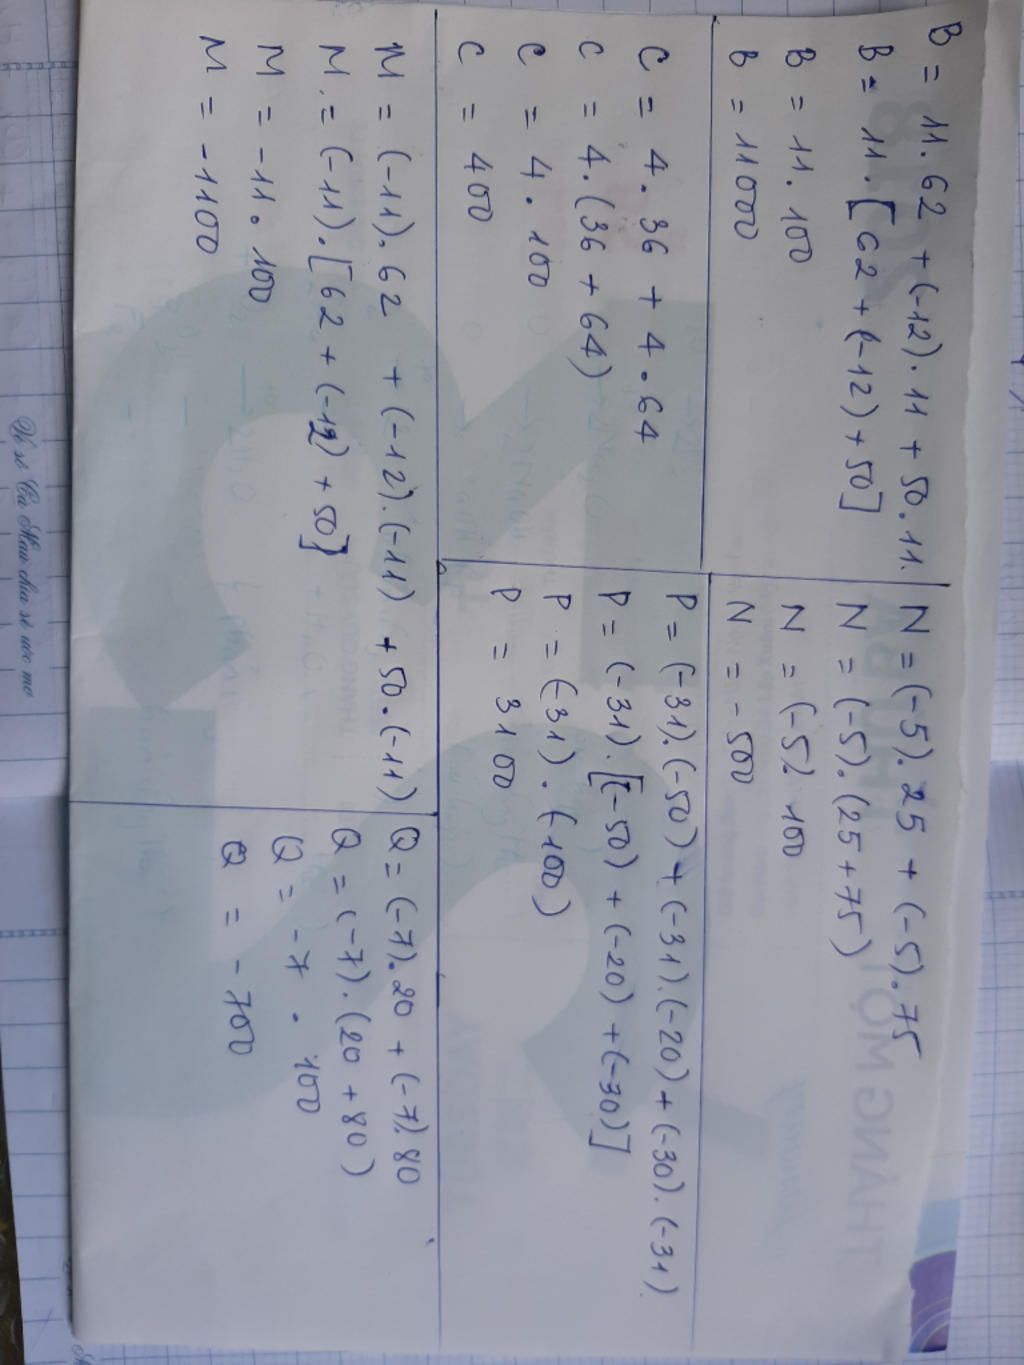 B = 11.62 + (-12).11 + 50.11.
B = 11.[62 + (-12) + 50]
B = 11.100
B = 11000
N = (-5).25 + (-5).75
N = (-5).(25+75)
N = (-5).100
N = -500
C = 4.36 + 4.64
C = 4.(36 + 64)
C = 4.100
C = 400
P = (-31).(-50) + (-31).(-20) + (-30).(-31)
P = (-31).[(-50) + (-20) + (-30)]
P = (-31).(-100)
P = 3100
M = (-11).62 + (-12).(-11) + 50.(-11)
M = (-11).[62 + (-12) + 50]
M = -11.100
M = -1100
Q = (-7).20 + (-7).80
Q = (-7).(20 + 80)
Q = -7.100
Q = -700
THÁNG MỘT
Vở sê Cà Mau chia sẻ ước mơ